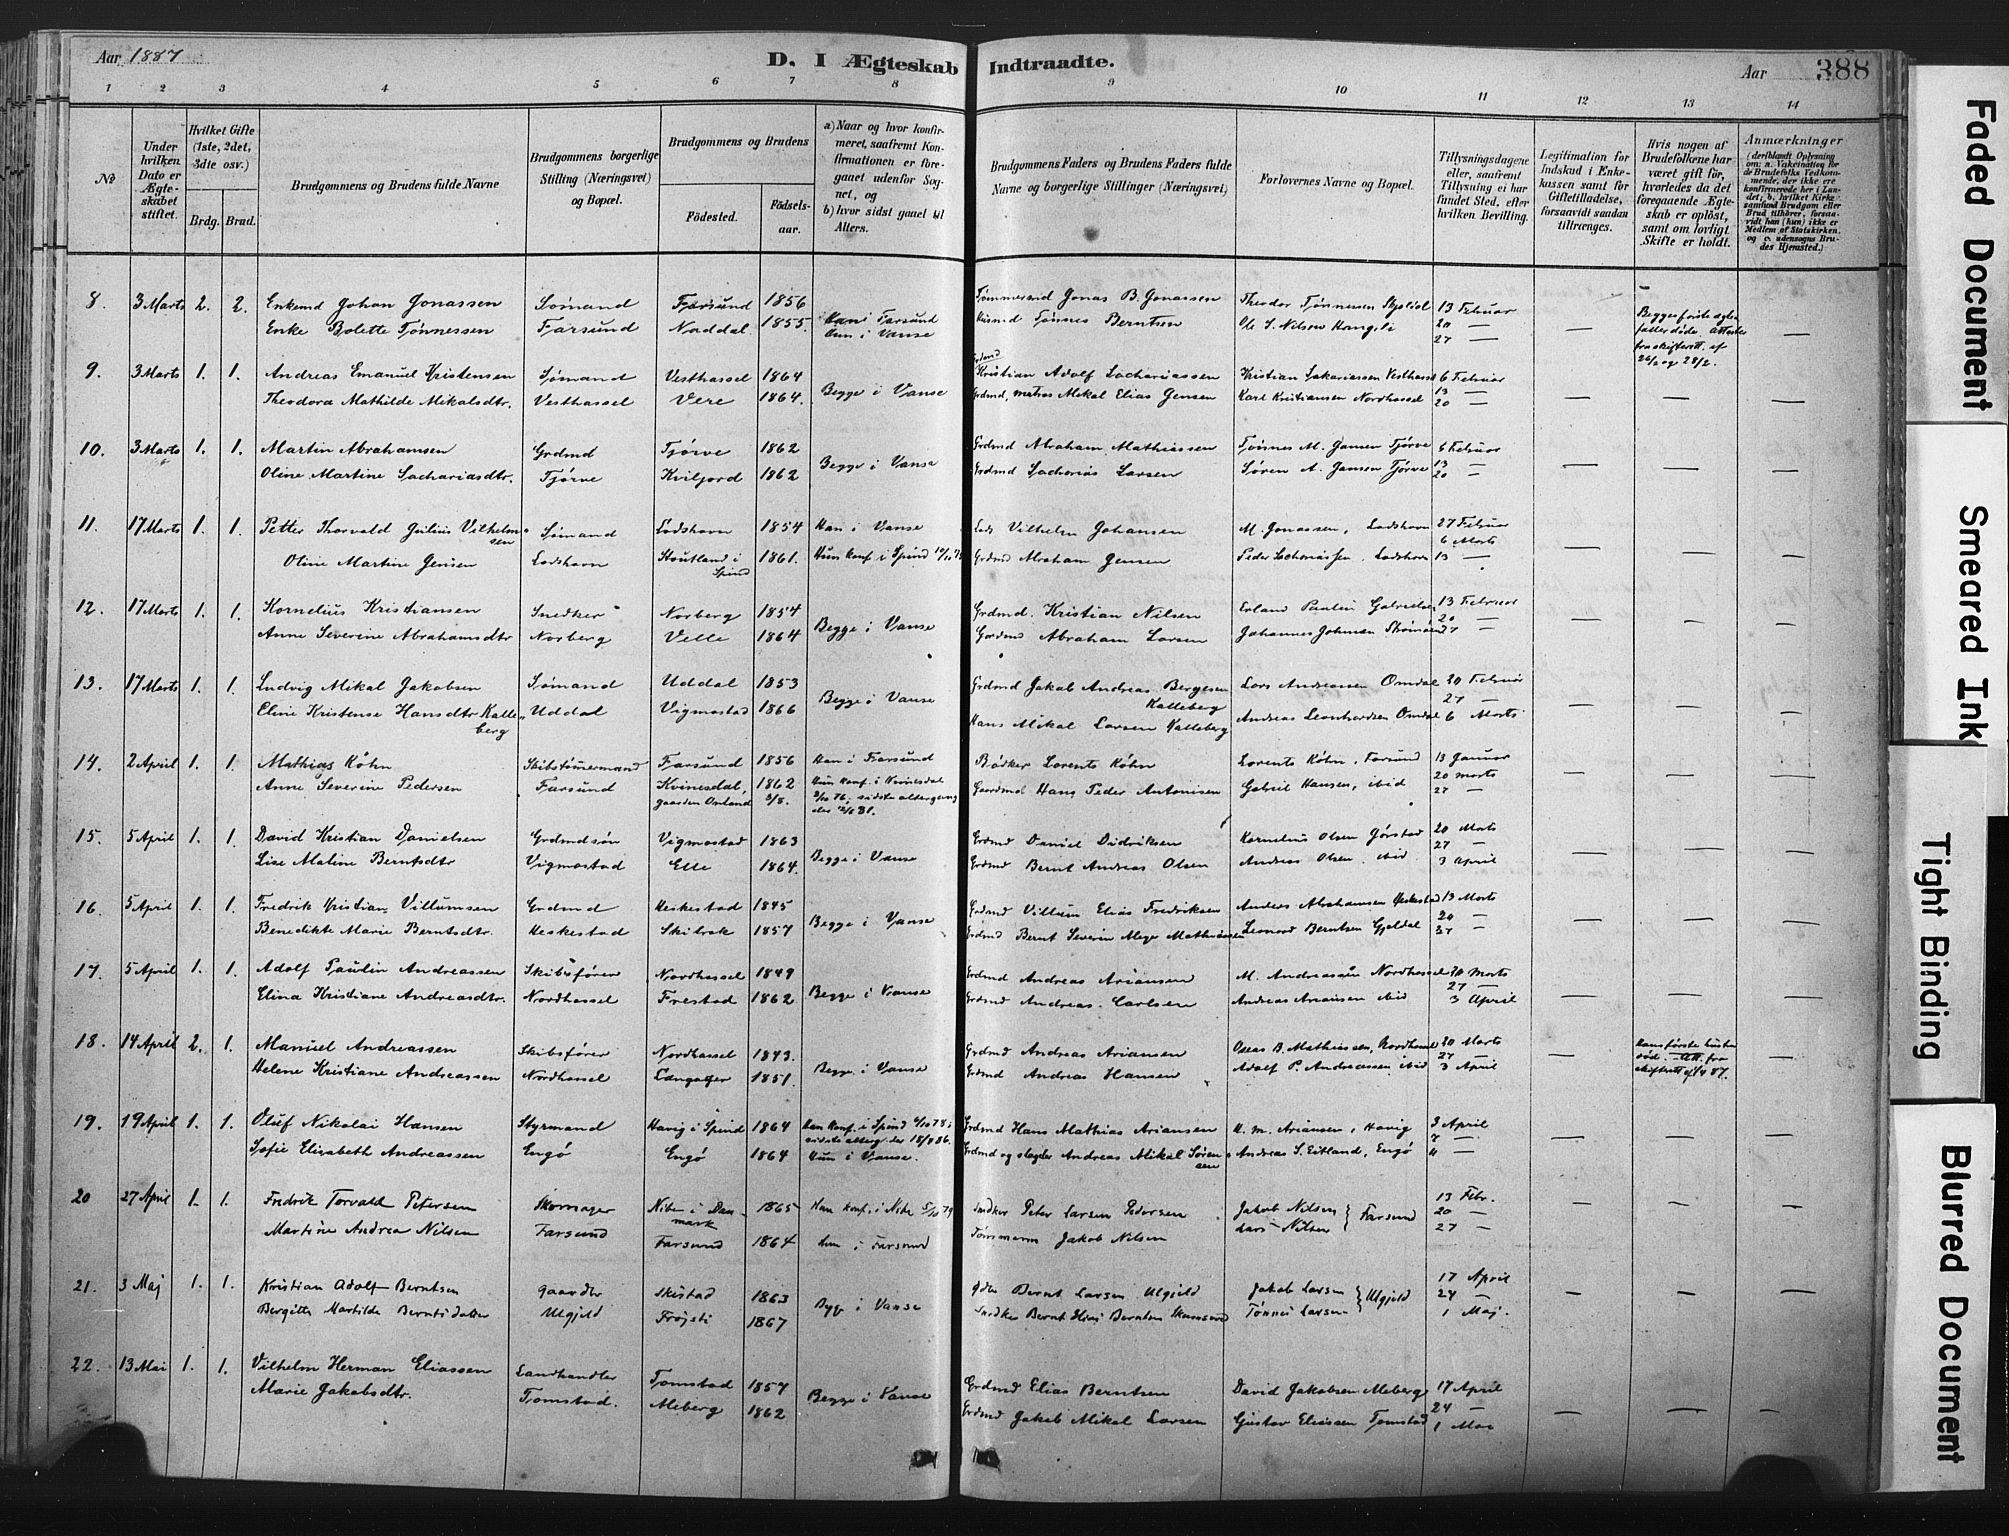 Aar 1887
D. I Ægteskab Indtraadte.
Aar
388
1 2 3 4 5 6 7 8 9 10 11 12 13 14
No
Under hvilken Dato er Ægteskabet stiftet.
Hvilket Gifte (1ste, 2det, 3die osv.)
Brdg. Brud.
Brudgommens og Brudens fulde Navne
Brudgommens borgerlige Stilling (Næringsvei) og Bopæl.
Brudgommens og Brudens
Fødested.
Fødsels-aar.
a) Naar og hvor konfirmeret, saafremt Konfirmationen er foregaaet udenfor Sognet, og
b) hvor sidst gaaet til Alters.
Brudgommens Faders og Brudens Faders fulde Navne og borgerlige Stillinger (Næringsvei)
Forlovernes Navne og Bopæl.
Tillysningsdagene eller, saafremt Tillysning ei har fundet Sted, efter hvilken Bevilling.
Legitimation for Indskud i Enkekassen samt for Giftetilladelse, forsaavidt saadan tiltrænges.
Hvis nogen af Brudefolkene har været gift før, hvorledes da det foregaaende Ægteskab er opløst, samt om lovligt Skifte er holdt.
Anmærkninger
(deriblandt Oplysning om: a. Vakcination for de Brudefolks Vedkommende, der ikke ere konfirmerede her i Landet; b. hvilket Kirkesamfund Brudgom eller Brud tilhører, forsaavidt han (hun) ikke er Medlem af Statskirken, og c. udensogns Brudes Hjemsted.)
8. 3 Marts 2. 2. Enkemd Johan Jonassen Sømand Farsund 1856 Han i Farsund Tømmermd Jonas B. Jonassen Theodor Tønnessen 13 Februar
Enke Bolette Tønnessen Farsund Noddal 1855. Hun i Vanse Husmd Tønnes Berntsen Ole S. Nilsen 20 —
27 —
Begges første døde
26/2 og 28/2.
9. 3 Marts 1. 1. Andreas Emanuel Kristensen Sømand Vesthassel 1864 Begge i Vanse Grdmd Kristian Adolf Zachariassen Kristian Zakariassen Vesthassel 6 Februar
Theodora Mathilde Mikalsdtr. Vesthassel Vere 1864. Grdmd, matros Mikal Elias Jensen Karl Kristiansen Nordhassel 13 —
20 —
10. 3 Marts 1. 1. Martin Abrahamsen Grdmd Tjørve 1862 Begge i Vanse Grdmd Abraham Mathiassen Tønnes M. Jansen Tjørve 6 Februar
Oline Martine Sachariasdtr. Tjørve Kviljord 1862 Grdmd Sacharias Larsen Søren A. Jansen Tjørve 13 —
20 —
11. 17 Marts 1. 1. Petter Thorvald Julius Vilhelmsen Sømand Lodshavn 1854 Han i Vanse Lods Vilhelm Johansen M. Jonassen, Lodshavn 27 Februar
6 Marts
Oline Martine Jensen Lodshavn Stoutland i Spind 1861. Hun konf. i Spind Grdmd Abraham Jensen Peder Zachariassen, Lodshavn 13 —
12. 17 Marts 1. 1. Kornelius Kristiansen Snedker Norberg 1854 Begge i Vanse Grdmd. Kristian Nilsen Erland Paulin Gabrielsen 13 Februar
Anne Severine Abrahamsdtr Norberg Velle 1864 Gordmd Abraham Larsen Johannes Johnsen 20 —
27 —
13. 17 Marts 1. 1. Ludvig Mikal Jakobsen Sømand Uddal 1853 Begge i Vanse Grdmd Jakob Andreas Bergesen Kalleberg Lars Andreassen Omdal 20 Februar
Eline Kristense Hansdtr Kalleberg Uddal Vigmostad 1866 Hans Mikal Larsen Kalleberg Andreas Leonhardsen Omdal 27 —
6 Marts
14. 2 April 1. 1. Mathias Köhn Skibstømmermand Farsund 1856 Han i Farsund Bødker Lorents Köhn Lorents Köhn, Farsund 13 Januar
Anne Severine Pedersen Farsund Kvinesdal, gaarden 1862 Hun konf. i Kvinesdal Gaardmd Hans Peder Antonisen Gabriel Hansen, ibid 20 Marts
27 —
15. 5 April 1. 1. David Kristian Danielsen Grdmdsøn Vigmostad 1863 Begge i Vanse Grdmd Daniel Didriksen Kornelius Olsen Jørstad 20 Marts
Lise Maline Berntsdtr Vigmostad Elle 1864. Grdmd Bernt Andreas Olsen Andreas Olsen, ibid. 27 —
3 April
16 5 April 1. 1. Fredrik Kristian Villumsen Grdmd Heskestad 1845 Begge i Vanse Grdmd Villum Elias Fredriksen Anders Abrahamsen Heskestad 13 Marts
Benedikte Marie Berntsdtr. Heskestad Skibrok 1857 Grdmd Bernt Severin Meyer Mathiassen Leonard Berntsen Gjeldal 20 —
27 —
17. 5 April 1. 1. Adolf Paulin Andreassen Skibsfører Nordhassel 1849 Begge i Vanse Grdmd Andreas Ariansen M. Andreassen Nordhassel 20 Marts
Elina Kristiane Andreasdtr. Nordhassel Frestad 1862 Grdmd Andreas Carlsen Andreas Ariansen ibid 27 —
3 April
18. 14 April 2. 1. Manuel Andreassen Skibsfører Nordhassel 1843. Begge i Vanse Grdmd Andreas Ariansen Oseas B. Mathiassen, Nordhassel 20 Marts
Helene Kristiane Andreassen Nordhassel Langager 1851. Grdmd Andreas Hansen Adolf P. Andreassen ibid 27 —
3 April
Hans første hustru død. Att. fra
19. 19 April 1. 1. Oluf Nikolai Hansen Styrmand Havig i Spind 1864 Han konf. i Spind Grdmd Hans Mathias Ariansen H. M. Ariansen, Havig 3 April
Sofie Elisabeth Andreassen Engø Engø 1864 Hun i Vanse. Grdmd og Andreas Mikal Sørensen Andreas S. Eitland, Engø 7 —
11 —
20 27 April 1. 1. Fredrik Torvald Petersen Skomager Nibe i Danmark 1865 Han konf. i Nibe 5/10 79 Snedker Peter Larsen Pedersen Jakob Nilsen 13 Febr.
Martine Andrea Nilsen Farsund Farsund 1864 hun i Farsund Tømmerm Jakob Nilsen Lars Nilsen } Farsund 20 —
27 —
21. 3 Maj 1. 1. Kristian Adolf Berntsen Ulgjeld Skistad 1863 Begge i Vanse Bernt Larsen Ulgjeld Jakob Larsen 17 April
Bergitte Martilde Berntsdatter Frøjsti 1867 Snedker Bernt Elias Berntsen Tønnes Larsen } Ulgjeld 24 —
1 Maj.
22. 13 Mai 1. 1. Vilhelm Herman Eliassen Landhandler Tjomstad 1857 Begge i Vanse Grdmd Elias Berntsen David Jakobsen Meberg 17 April
Marie Jakobsdtr. Tjomstad. Meberg 1862 Grdmd Jakob Mikal Larsen Gustav Eliassen Tjomstad 24 —
1 Mai
Faded Document
Smeared Ink
Tight Binding
Blurred Document